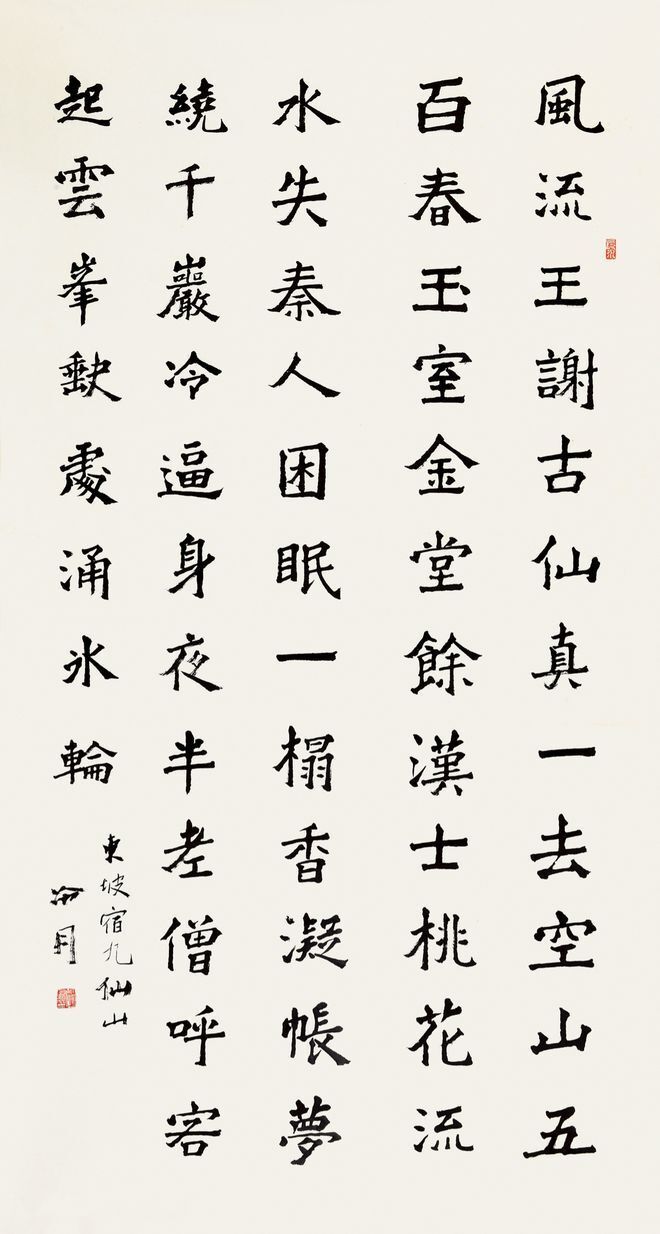 風流王謝古仙真一去空山五
百春玉室金堂餘漢士桃花流
水失秦人困眠一榻香凝帳夢
繞千巖冷逼身夜半老僧呼客
起雲峯缺處涌冰輪
東坡宿九仙山
冷月